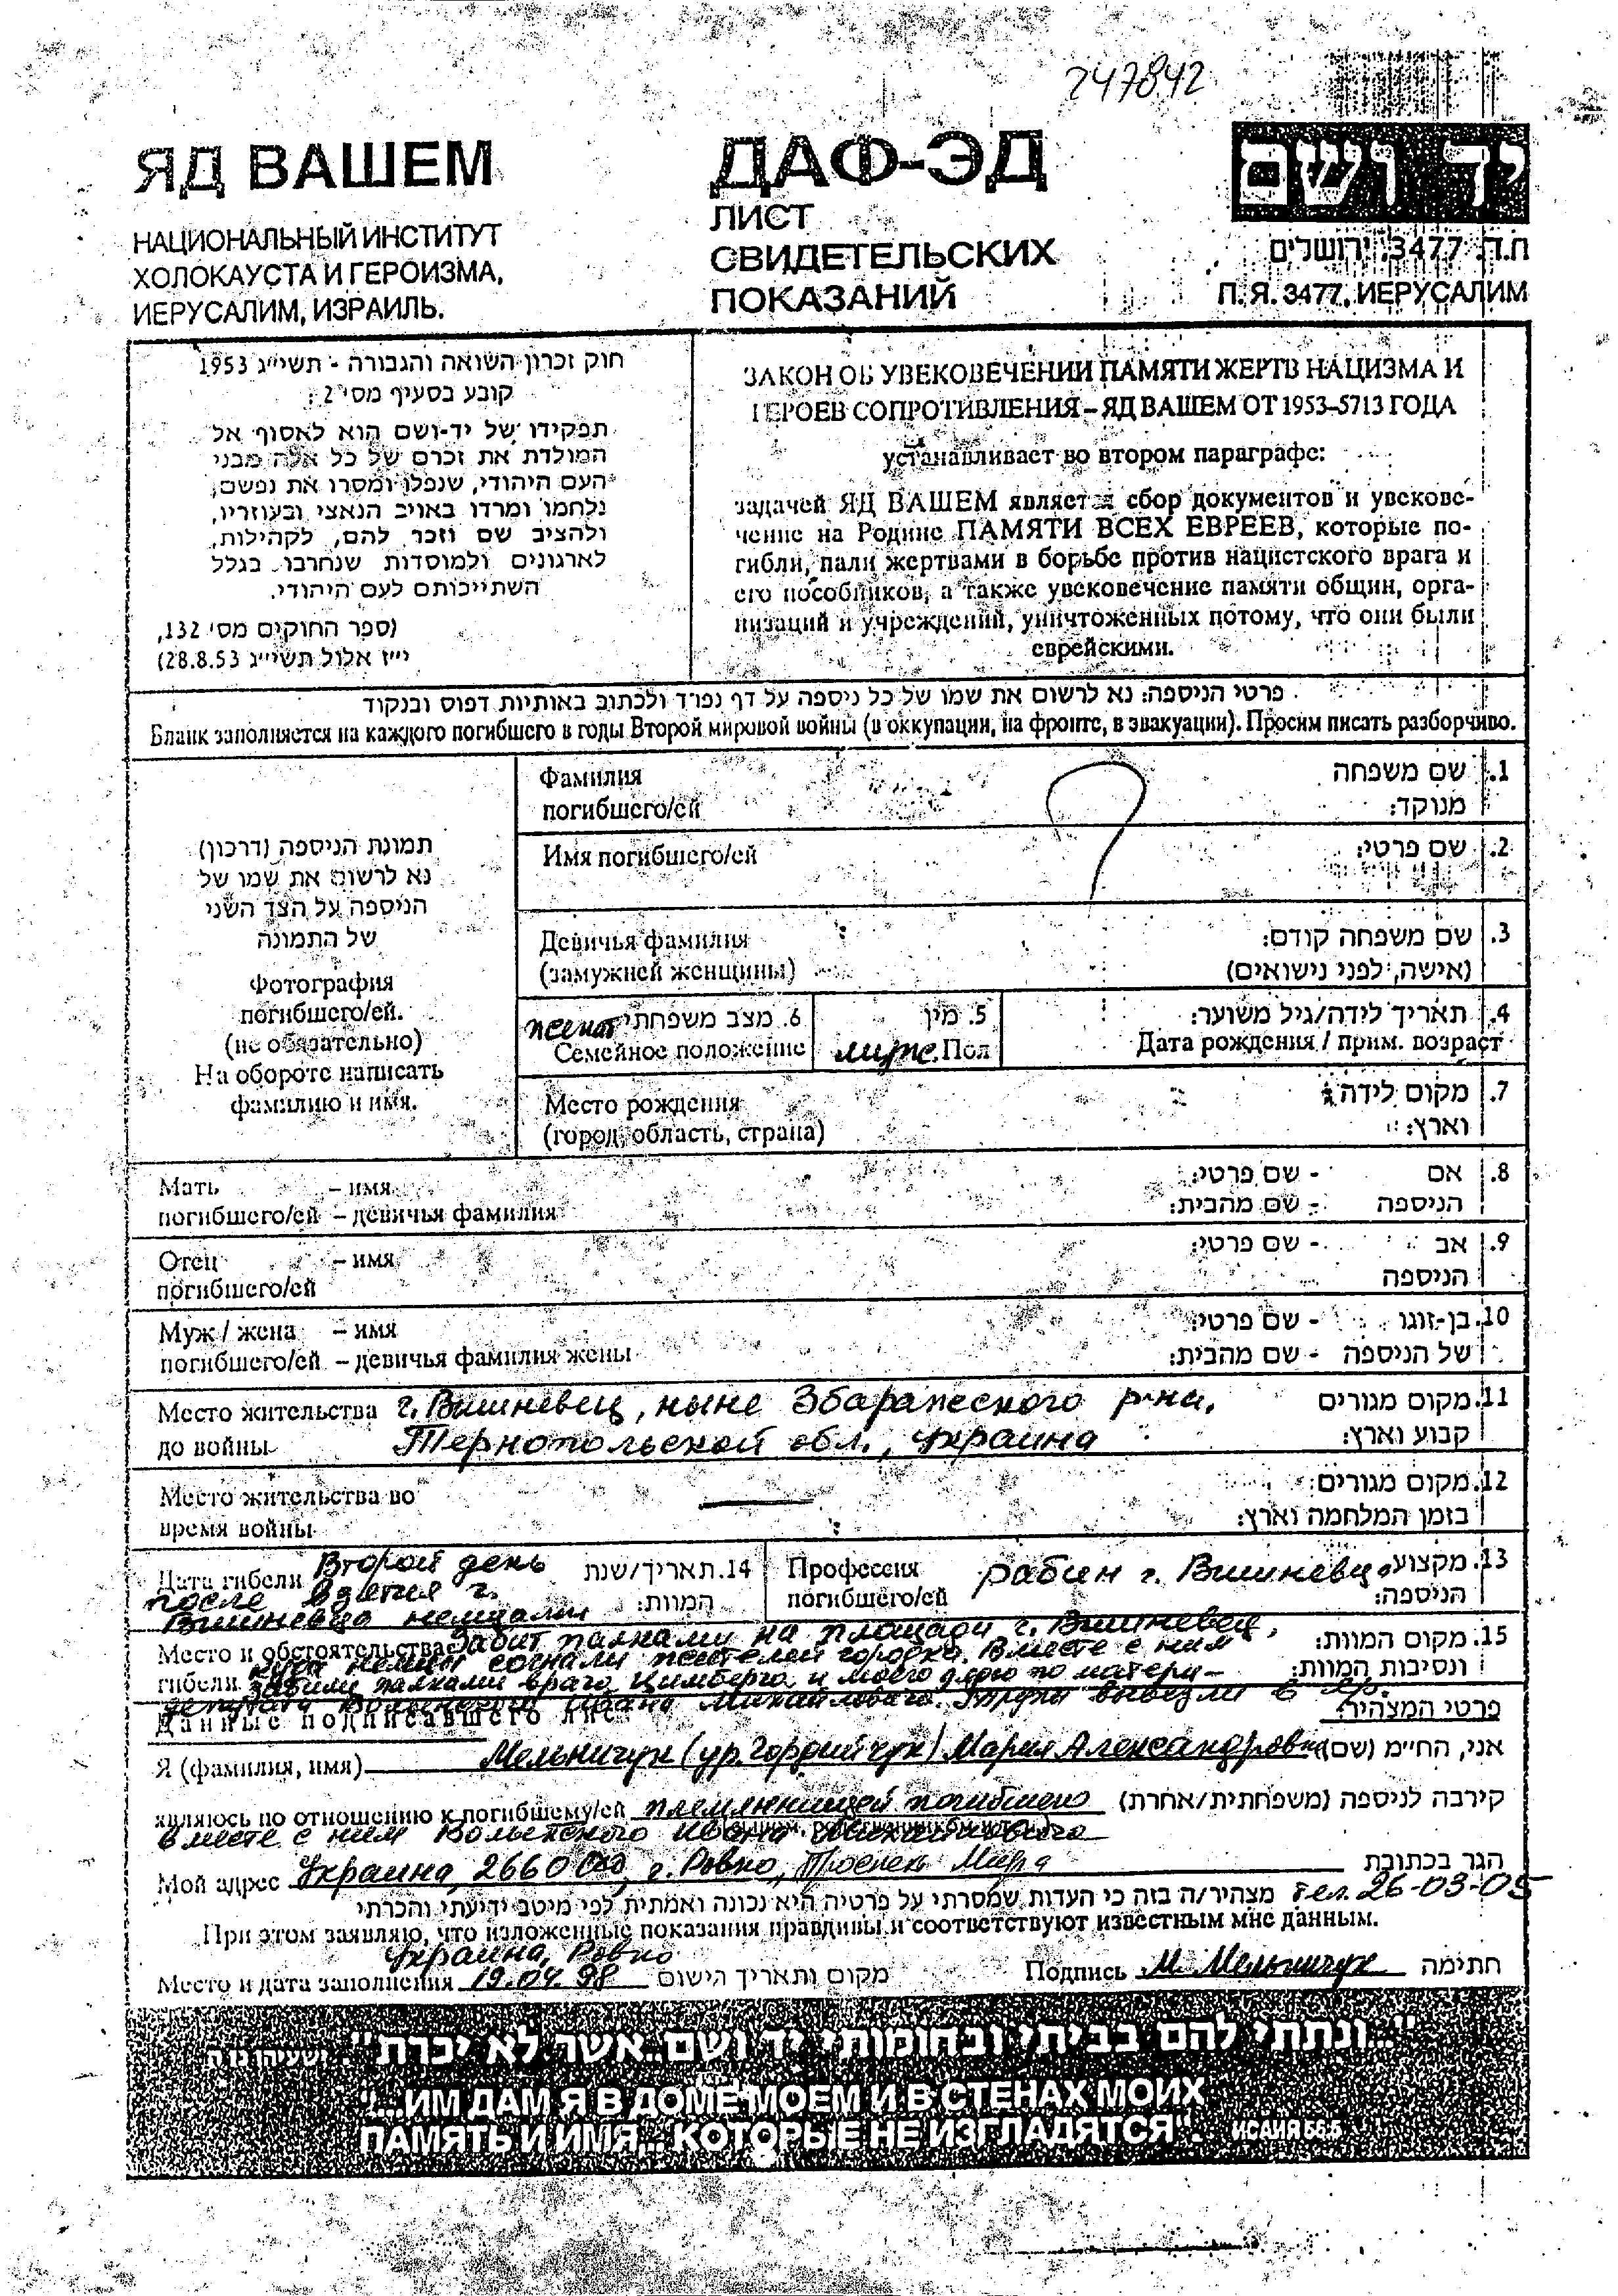 247842
ЯД ВАШЕМ
НАЦИОНАЛЬНЫЙ ИНСТИТУТ
ХОЛОКАУСТА И ГЕРОИЗМА,
ИЕРУСАЛИМ, ИЗРАИЛЬ.
ДАФ-ЭД
ЛИСТ
СВИДЕТЕЛЬСКИХ
ПОКАЗАНИЙ
יד ושם
ת.ד. 3477, ירושלים
П.Я. 3477, ИЕРУСАЛИМ
חוק זכרון השואה והגבורה - תשי״ג 1953
קובע בסעיף מס׳ 2:
תפקידו של יד-ושם הוא לאסוף אל
המולדת את זכרם של כל אלה מבני
העם היהודי, שנפלו ומסרו את נפשם,
נלחמו ומרדו באויב הנאצי ובעוזריו,
ולהציב שם וזכר להם, לקהילות,
לארגונים ולמוסדות שנחרבו בגלל
השתייכותם לעם היהודי.
(ספר החוקים מס׳ 132,
י״ז אלול תשי״ג 28.8.53)
ЗАКОН ОБ УВЕКОВЕЧЕНИИ ПАМЯТИ ЖЕРТВ НАЦИЗМА И
ГЕРОЕВ СОПРОТИВЛЕНИЯ – ЯД ВАШЕМ ОТ 1953–5713 ГОДА
устанавливает во втором параграфе:
задачей ЯД ВАШЕМ является сбор документов и увекове-
чение на Родине ПАМЯТИ ВСЕХ ЕВРЕЕВ, которые по-
гибли, пали жертвами в борьбе против нацистского врага и
его пособников, а также увековечение памяти общин, орга-
низаций и учреждений, уничтоженных потому, что они были
еврейскими.
פרטי הניספה: נא לרשום את שמו של כל ניספה על דף נפרד ולכתוב באותיות דפוס ובנקוד
Бланк заполняется на каждого погибшего в годы Второй мировой войны (в оккупации, на фронте, в эвакуации). Просим писать разборчиво.
תמונת הניספה (דרכון)
נא לרשום את שמו של
הניספה על הצד השני
של התמונה
Фотография
погибшего/ей.
(не обязательно)
На обороте написать
фамилию и имя.
Фамилия
погибшего/ей
?
1. שם משפחה
מנוקד:
Имя погибшего/ей
2. שם פרטי:
Девичья фамилия
(замужней женщины)
3. שם משפחה קודם:
(אישה, לפני נישואים)
женат
6. מצב משפחתי
Семейное положение
5. מין
муж. Пол
4. תאריך לידה/גיל משוער:
Дата рождения / прим. возраст
Место рождения
(город, область, страна)
7. מקום לידה
וארץ:
Мать – имя
погибшего/ей – девичья фамилия
8. אם - שם פרטי:
הניספה - שם מהבית:
Отец – имя
погибшего/ей
9. אב - שם פרטי:
הניספה
Муж / жена – имя
погибшего/ей – девичья фамилия жены
10. בן-זוגו - שם פרטי:
של הניספה - שם מהבית:
Место жительства г. Вишневец, ныне Збаражского р-на,
до войны Тернопольской обл., Украина
11. מקום מגורים
קבוע וארץ:
Место жительства во
время войны —
12. מקום מגורים
בזמן המלחמה וארץ:
Дата гибели Второй день
после взятия г.
Вишневца немцами
14. תאריך/שנת
המוות:
Профессия
погибшего/ей
рабин г. Вишневца
13. מקצוע
הניספה:
Место и обстоятельства Забит палками на площади г. Вишневец,
куда немцы согнали жителей городка. Вместе с ним
гибели забили палками врача Цимберга и моего дядю по матери –
депутата Волынского Ивана Михайловича. Трупы вывезли в
15. מקום המוות:
ונסיבות המוות:
Данные подписавшего лист
פרטי המצהיר:
Я (фамилия, имя) Мельничук (ур. Гордийчук) Мария Александровна אני, החי״מ (שם)
являюсь по отношению к погибшему/ей племянницей погибшего קירבה לניספה (משפחתית/אחרת)
вместе с ним Волынского Ивана Михайловича
Мой адрес Украина, 266000, г. Ровно, Мира הגר בכתובת
тел. 26-03-05
מצהיר/ה בזה כי העדות שמסרתי על פרטיה היא נכונה ואמתית לפי מיטב ידיעתי והכרתי
При этом заявляю, что изложенные показания правдивы и соответствуют известным мне данным.
Украина, Ровно
Место и дата заполнения 19.04.98 מקום ותאריך הישום
Подпись М. Мельничук חתימה
"...ונתתי להם בביתי ובחומותי יד ושם...אשר לא יכרת" ישעיה נו ה
"...ИМ ДАМ Я В ДОМЕ МОЕМ И В СТЕНАХ МОИХ
ПАМЯТЬ И ИМЯ... КОТОРЫЕ НЕ ИЗГЛАДЯТСЯ". ИСАИЯ 56:5